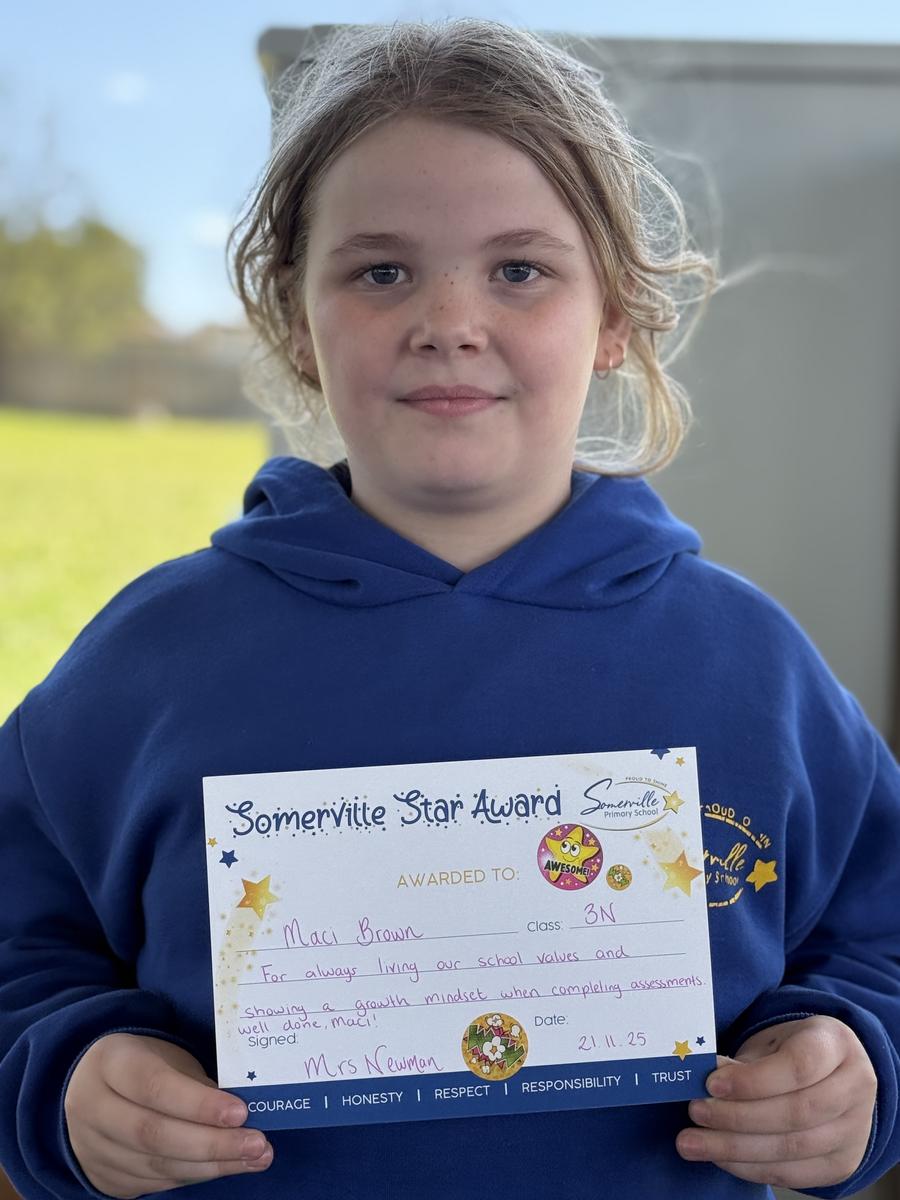 Somerville Star Award
PROUD TO SHINE
Somerville
Primary School
AWESOME!
AWARDED TO:
Maci Brown Class: 3N
For always living our school values and
showing a growth mindset when completing assessments.
well done, Maci!
Signed: Date:
Mrs Newman 21.11.25
COURAGE | HONESTY | RESPECT | RESPONSIBILITY | TRUST